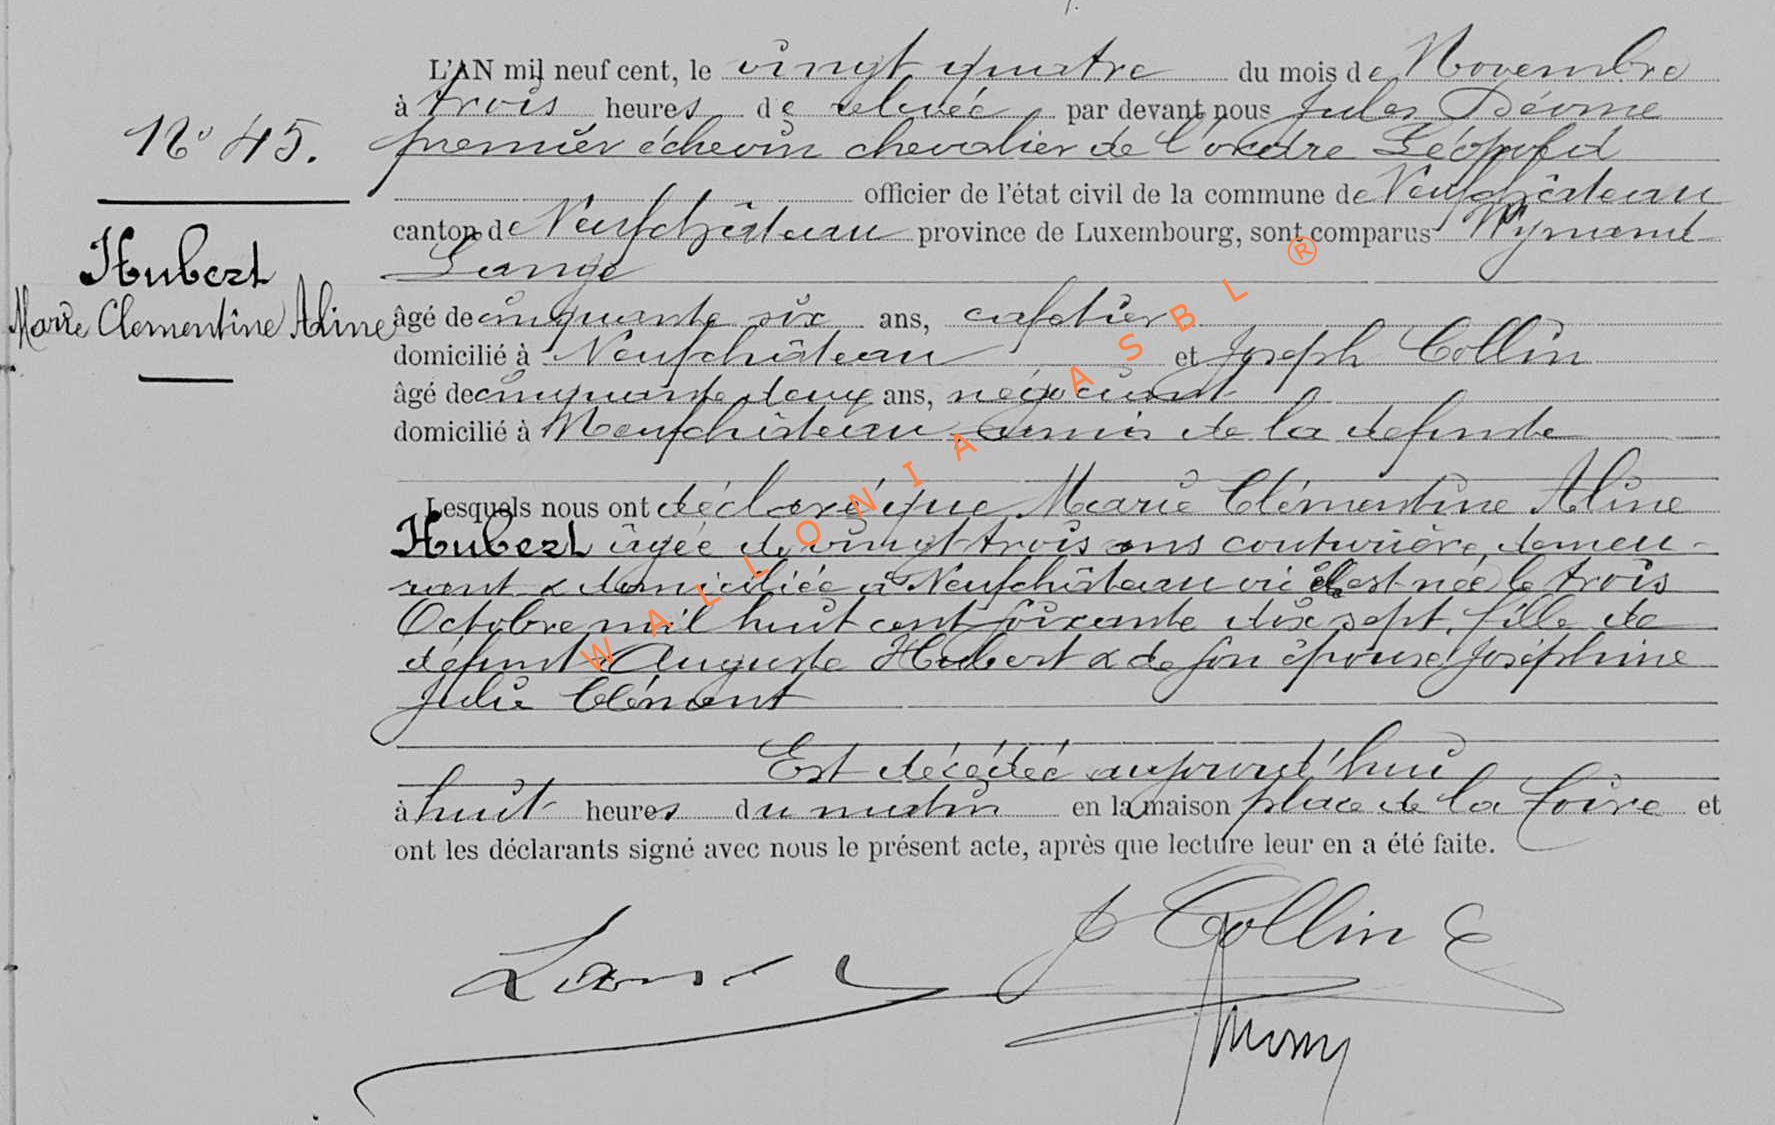 L'AN mil neuf cent, le vingt quatre du mois de Novembre
à trois heures de relevée par devant nous Jules
premier échevin chevalier de l'ordre Léopold
officier de l'état civil de la commune de Neufchâteau
canton de Neufchâteau province de Luxembourg, sont comparus Wynand
Lange
âgé de cinquante six ans, cafetier
domicilié à Neufchâteau et Joseph Collin
âgé de cinquante deux ans, négociant
domicilié à Neufchâteau amis de la defunte
Lesquels nous ont déclaré que Marie Clémentine Aline
Hubert âgée de vingt trois ans couturière, demeu-
rant & domiciliée à Neufchâteau où elle est née le trois
Octobre mil huit cent soixante dix sept, fille de
défunt Auguste Hubert & de son épouse Joséphine
Julie Clément
Est décédée aujourd'hui
à huit heures du matin en la maison place de la foire et
ont les déclarants signé avec nous le présent acte, après que lecture leur en a été faite.
No 45.
Hubert
Marie Clementine Aline
Lange
J Collin
WALLONIA ASBL ®